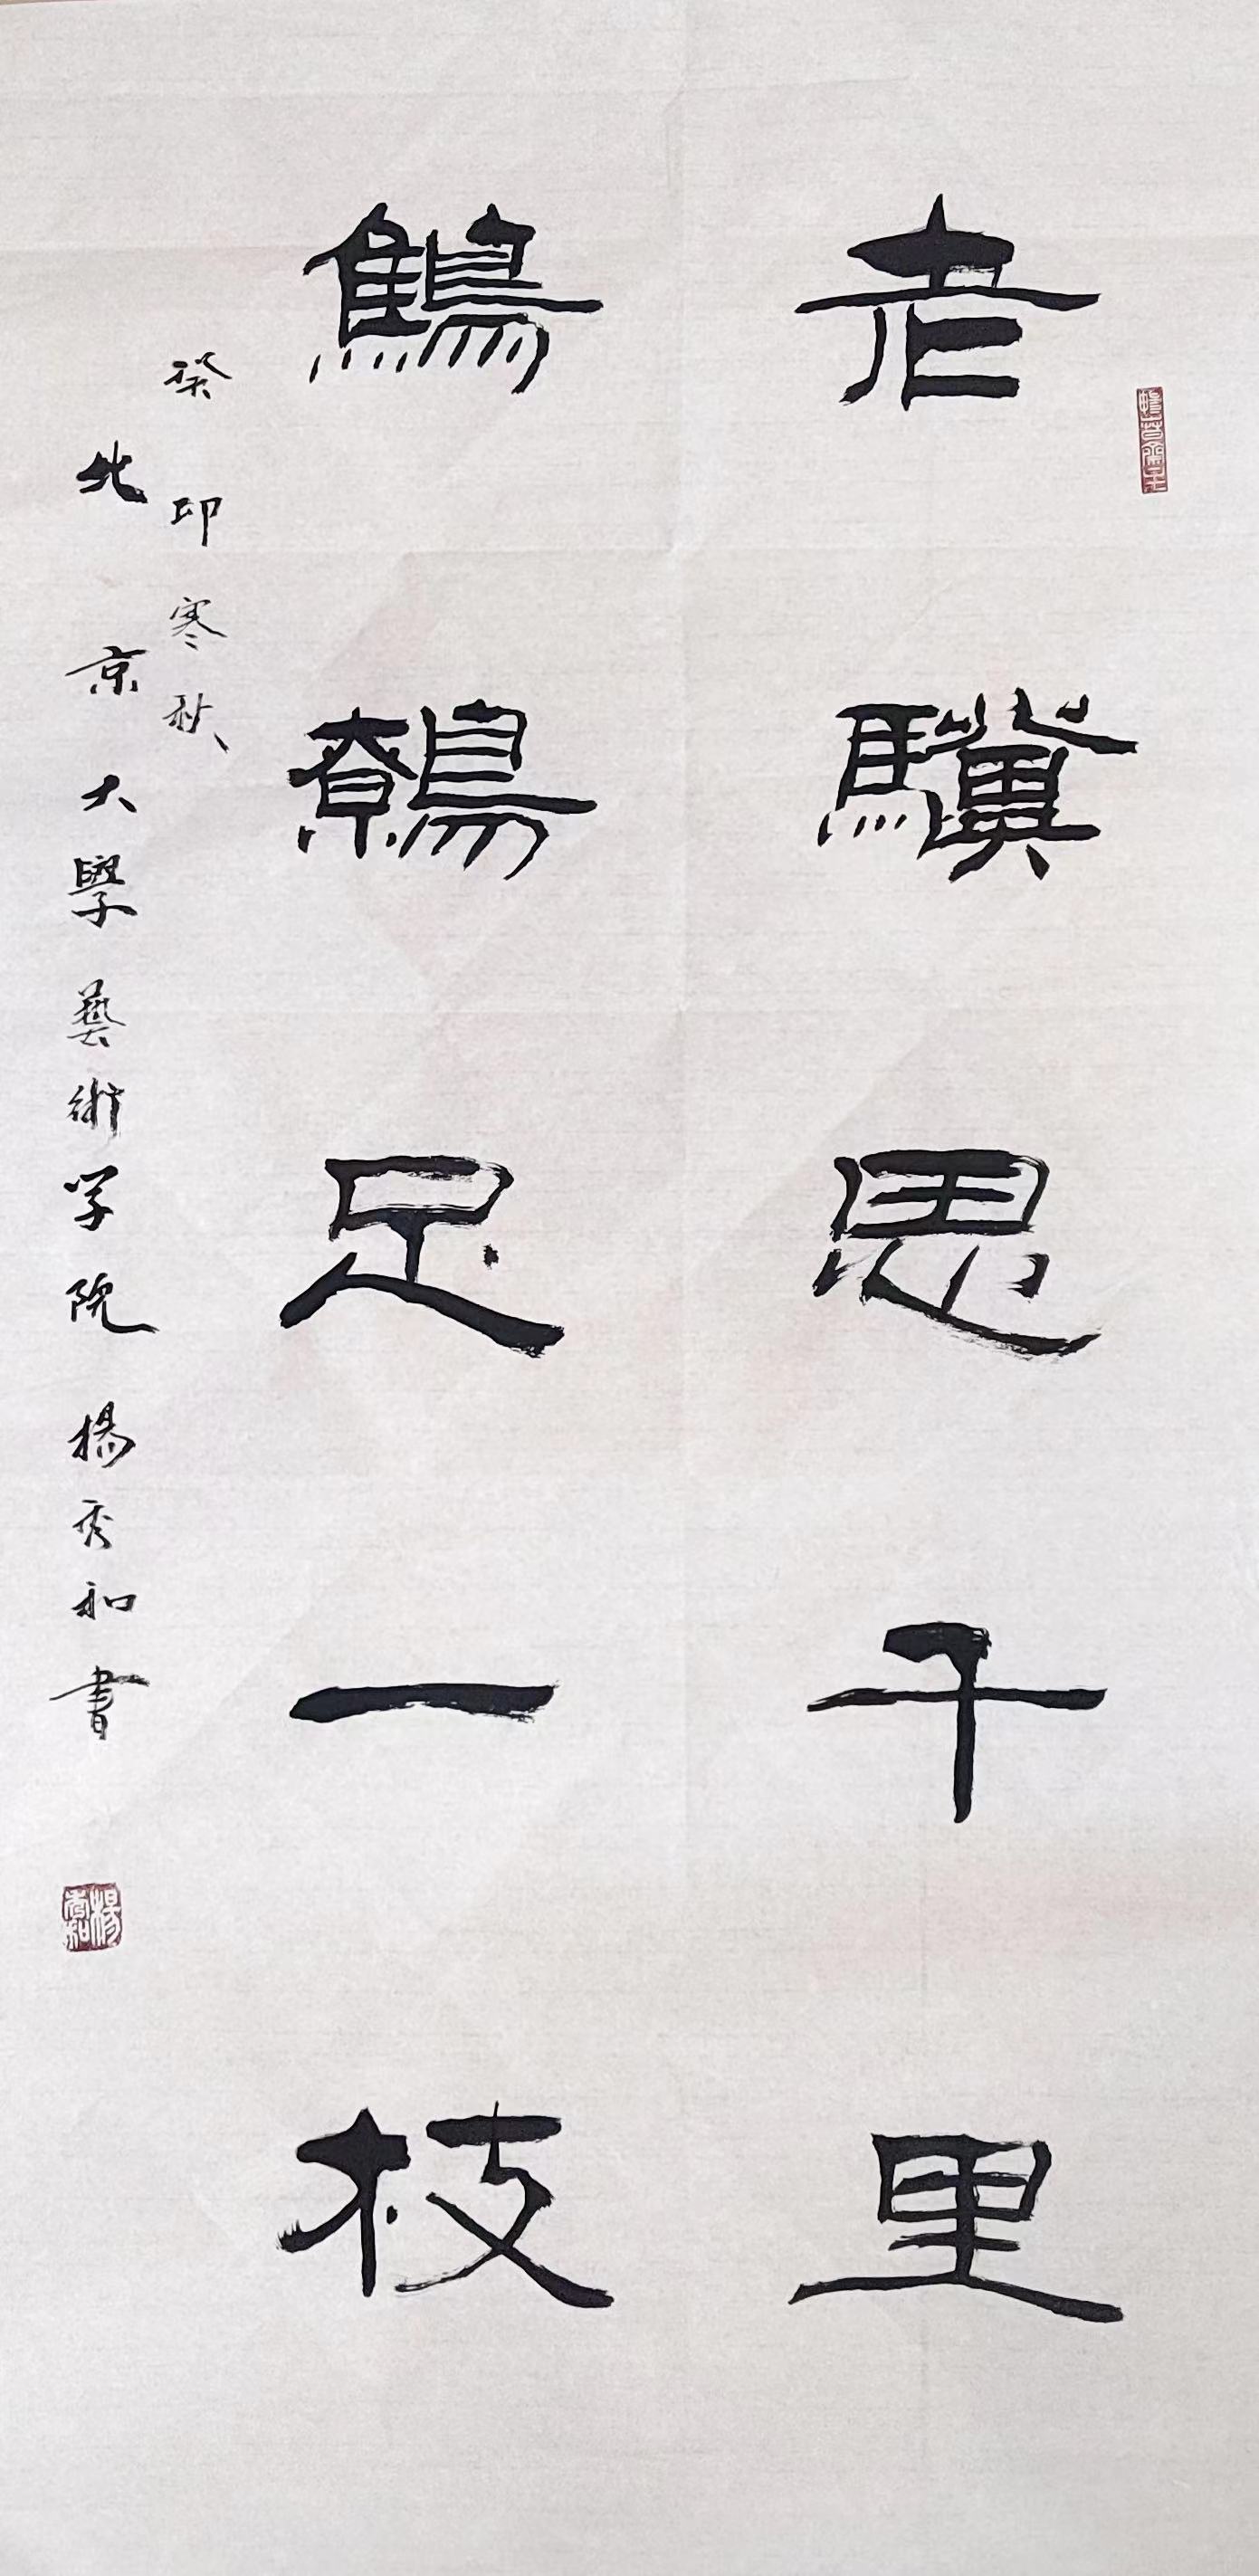 老驥思千里
鷦鷯足一枝
癸卯寒秋
北京大學藝術学院楊秀和書
楊秀和